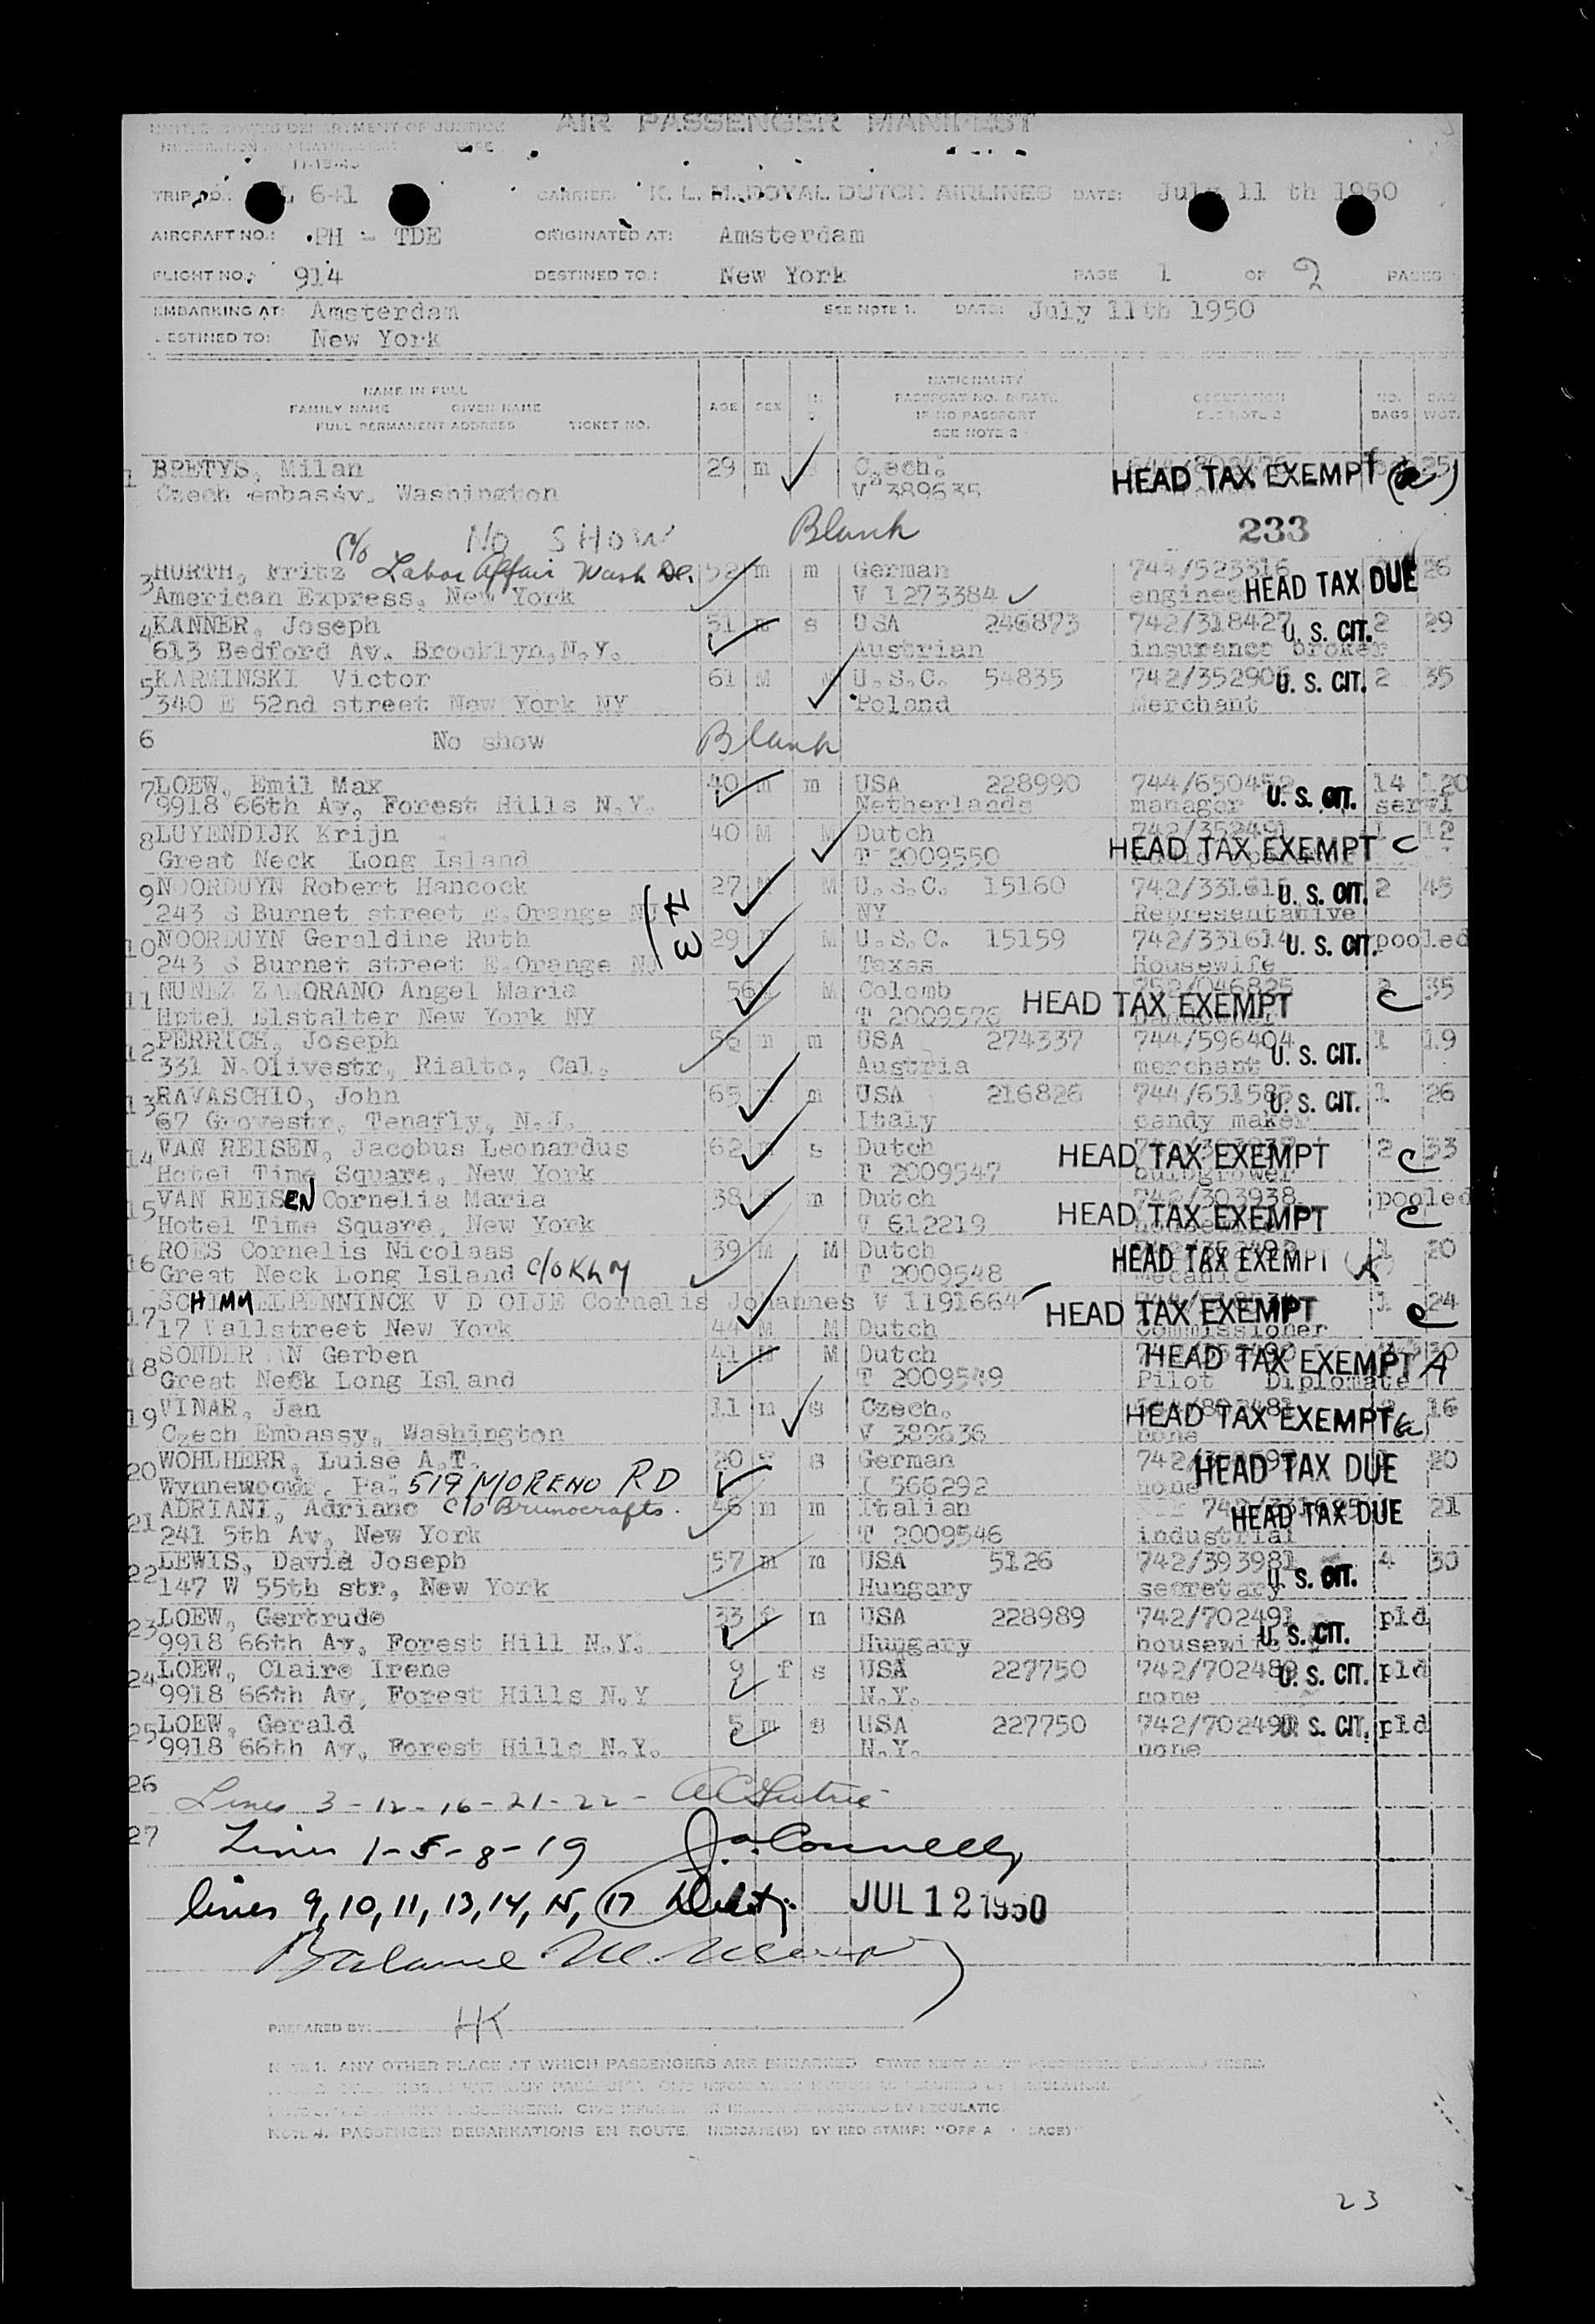 UNITED STATES DEPARTMENT OF JUSTICE AIR PASSENGER MANIFEST
11-15-40
TRIP NO.: L 641 CARRIER: K. L. M. ROYAL DUTCH AIRLINES DATE: July 11 th 1950
AIRCRAFT NO.: PH - TDE ORIGINATED AT: Amsterdam
FLIGHT NO.: 914 DESTINED TO.: New York PAGE 1 OF 2 PAGES
EMBARKING AT: Amsterdam SEE NOTE 1. DATE: July 11th 1950
DESTINED TO: New York
NAME IN FULL NATIONALITY
FAMILY NAME GIVEN NAME AGE SEX PASSPORT NO. & DATE OCCUPATION NO. BAG
FULL PERMANENT ADDRESS TICKET NO. IF NO PASSPORT SEE NOTE 2 BAGS WGT.
SEE NOTE 2
1 BRETYS, Milan 29 m s Czech. HEAD TAX EXEMPT 25
Czech embassy. Washington V 389635
No SHOW Blank 233
3 HURTH, Fritz c/o Labor Affair Wash DC. 52 m m German 744/523316 26
American Express, New York V 1273384 engineer HEAD TAX DUE
4 KANNER, Joseph 51 m s USA 246873 742/318427 U. S. CIT. 2 29
613 Bedford Av. Brooklyn, N.Y. Austrian insurance broker
5 KARMINSKI Victor 61 M M U.S.C. 54835 742/352906 U. S. CIT. 2 35
340 E 52nd street New York NY Poland Merchant
6 No show Blank
7 LOEW, Emil Max 40 m m USA 228990 744/650452 14 120
9918 66th Av, Forest Hills N.Y. Netherlands manager U. S. CIT. servi
8 LUYENDIJK Krijn 40 M M Dutch 742/352491 1 12
Great Neck Long Island T 2009550 HEAD TAX EXEMPT C
9 NOORDUYN Robert Hancock 27 M M U.S.C. 15160 742/331615 U. S. CIT. 2 45
243 S Burnet street E.Orange NJ NY Representative
10 NOORDUYN Geraldine Ruth 29 F M U.S.C. 15159 742/331614 U. S. CIT. pooled
243 S Burnet street E.Orange NJ Taxas Housewife
11 NUNEZ ZAMORANO Angel Maria 56 M M Colomb 752/046825 2 35
Hptel Elstalter New York NY T 2009576 HEAD TAX EXEMPT C
12 PERRICH, Joseph 56 m m USA 274337 744/596404 1 19
331 N.Olivestr, Rialto, Cal. Austria merchant U. S. CIT.
13 RAVASCHIO, John 65 m m USA 216826 744/651585 U. S. CIT. 1 26
67 Grovestr, Tenafly, N.J. Italy candy maker
14 VAN REISEN, Jacobus Leonardus 62 m s Dutch HEAD TAX EXEMPT 2 C 33
Hotel Time Square, New York T 2009547 bulbgrower
15 VAN REISEN Cornelia Maria 38 f m Dutch 742/303938 pooled
Hotel Time Square, New York V 612219 HEAD TAX EXEMPT C
16 ROES Cornelis Nicolaas 39 M M Dutch HEAD TAX EXEMPT 1 20
Great Neck Long Island c/o KLM T 2009548 Mecanic
17 SCHIMMELPENNINCK V D OIJE Cornelis Johannes V 1191664 HEAD TAX EXEMPT 1 C 24
17 Wallstreet New York 44 M M Dutch Commissioner
18 SONDERMAN Gerben 41 M M Dutch HEAD TAX EXEMPT A 30
Great Neck Long Island T 2009549 Pilot Diplomate
19 VINAR, Jan 11 m s Czech. HEAD TAX EXEMPT 16
Czech Embassy, Washington V 389636 none
20 WOHLHERR, Luise A.T. 20 f s German HEAD TAX DUE 20
Wynnewood, Pa. 519 MORENO RD T 566292 none
21 ADRIANI, Adriano c/o Brunocrafts. 46 m m Italian HEAD TAX DUE 21
241 5th Av, New York T 2009546 industrial
22 LEWIS, David Joseph 57 m m USA 5126 742/393981 4 30
147 W 55th str, New York Hungary secretary U. S. CIT.
23 LOEW, Gertrude 33 f m USA 228989 742/702491 pld
9918 66th Av, Forest Hill N.Y. Hungary housewife U. S. CIT.
24 LOEW, Claire Irene 9 f s USA 227750 742/702489 U. S. CIT. pld
9918 66th Av, Forest Hills N.Y N.Y. none
25 LOEW, Gerald 5 m s USA 227750 742/702490 U. S. CIT. pld
9918 66th Av, Forest Hills N.Y. N.Y. none
26 Lines 3-12-16-21-22-
27 Lines 1-5-8-19 J. Connelly
lines 9, 10, 11, 13, 14, 15, 17 JUL 12 1950
Balance
PREPARED BY: HK
NOTE 1. ANY OTHER PLACE AT WHICH PASSENGERS ARE EMBARKED STATE NEXT ABOVE PASSENGERS EMBARKED THERE.
NOTE 4. PASSENGER DEBARKATIONS EN ROUTE. INDICATE(D) BY RED STAMP: "OFF A PLACE)"
23